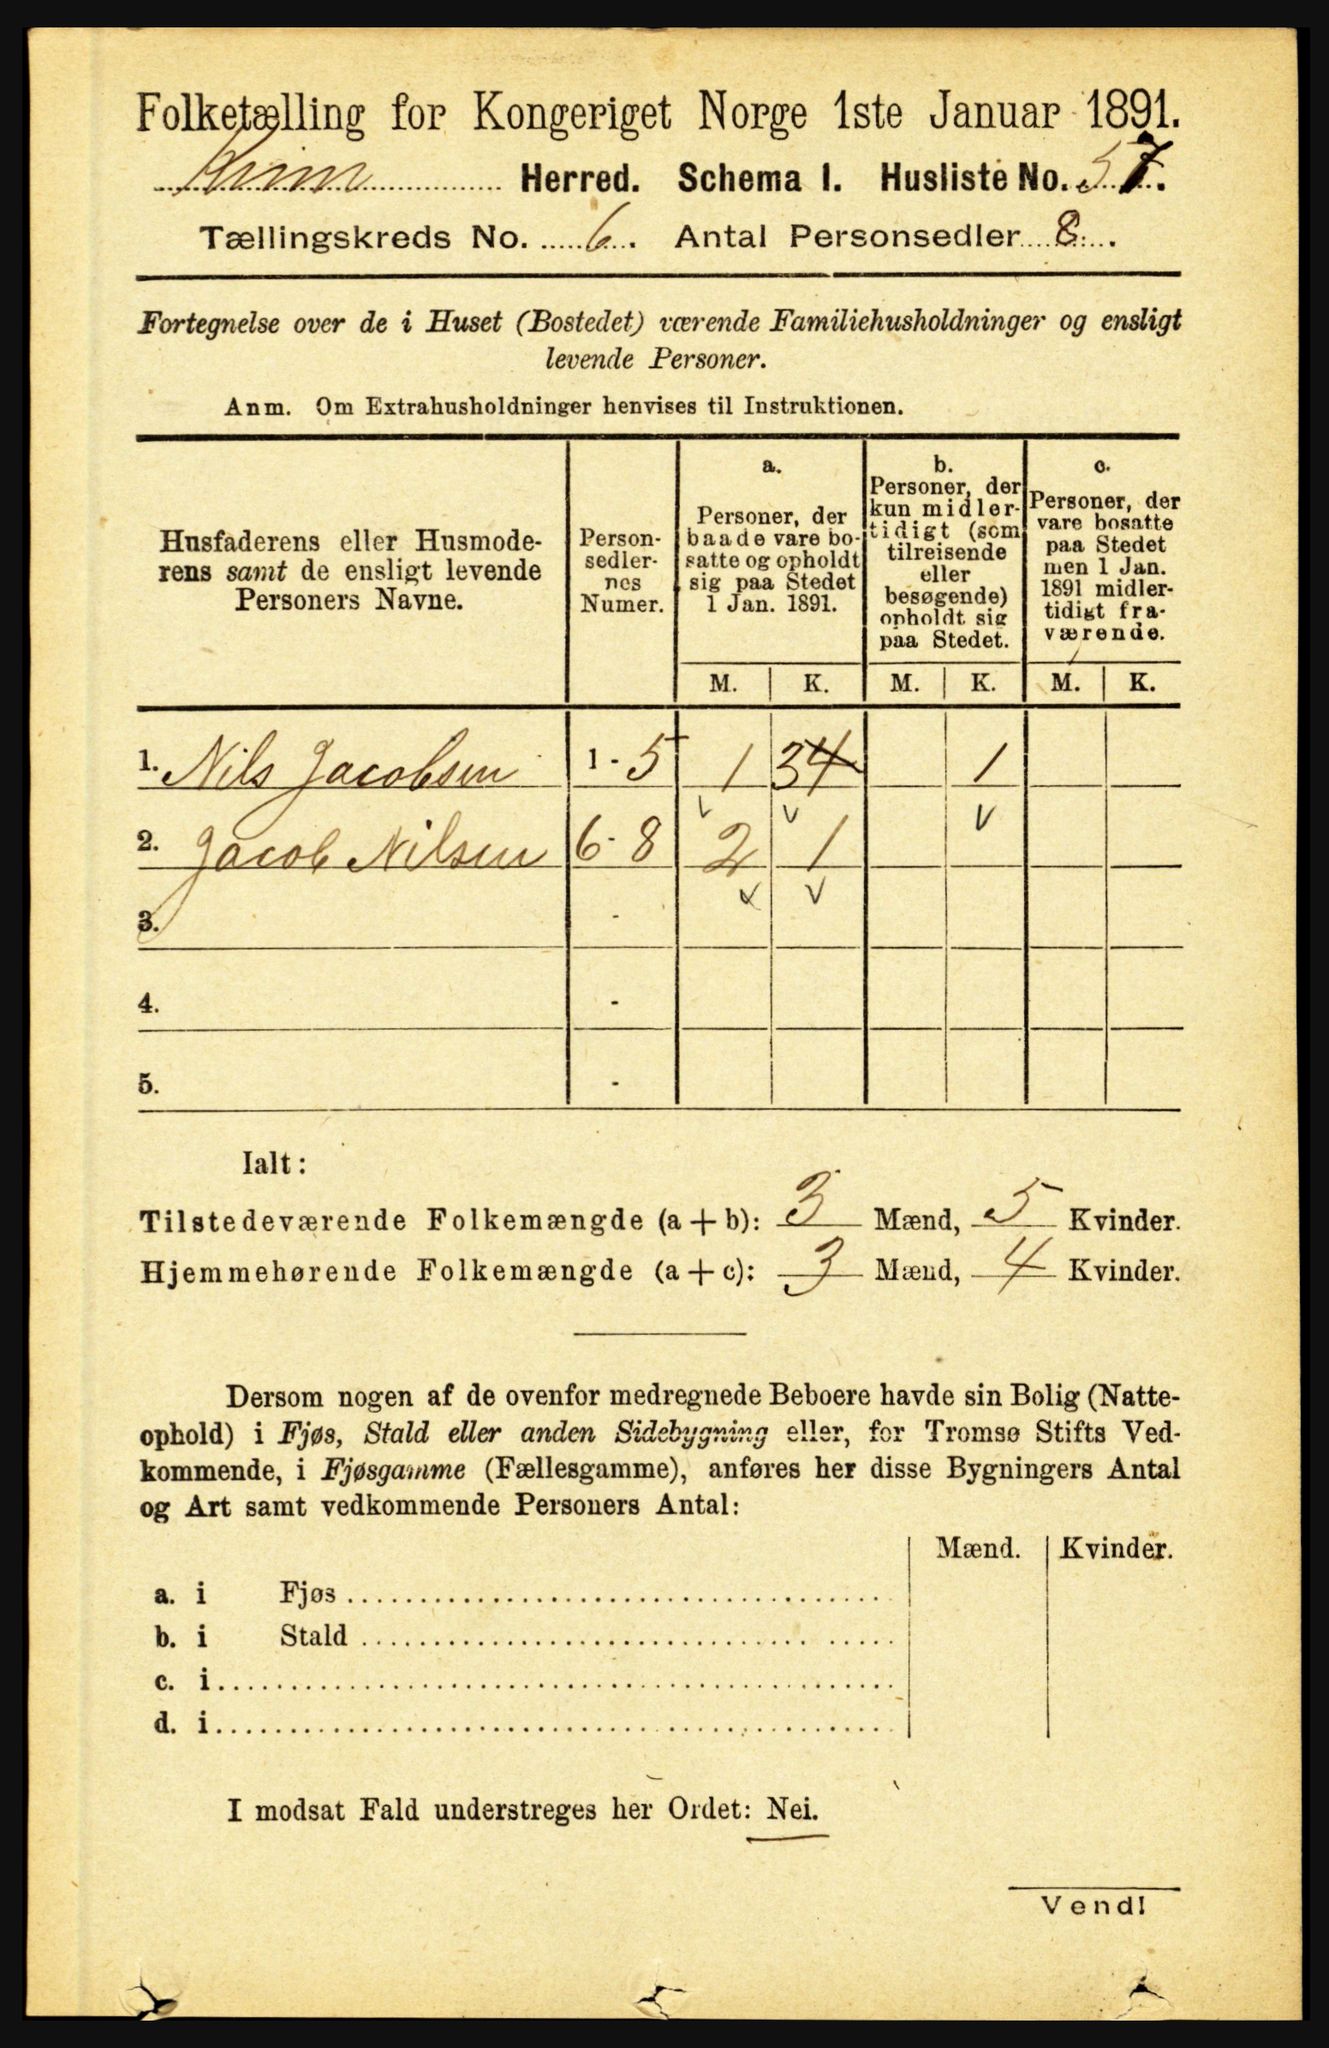 Folketælling for Kongeriget Norge 1ste Januar 1891.
Herred. Schema I. Husliste No. 57.
Tællingskreds No. 6. Antal Personsedler 8.
Fortegnelse over de i Huset (Bostedet) værende Familiehusholdninger og ensligt
levende Personer.
Anm. Om Extrahusholdninger henvises til Instruktionen.
Husfaderens eller Husmode-
rens samt de ensligt levende
Personers Navne.
Person-
sedler-
nes
Numer.
a.
Personer, der
baade vare bo-
satte og opholdt
sig paa Stedet
1 Jan. 1891.
b.
Personer, der
kun midler-
tidigt (som
tilreisende
eller
besøgende)
opholdt sig
paa Stedet.
c.
Personer, der
vare bosatte
paa Stedet
men 1 Jan.
1891 midler-
tidigt fra-
værende.
M. K. M. K. M. K.
1. Nils Jacobsen 1-5 1 3 4 1
2. Jacob Nilsen 6-8 2 1
3. -
4. -
5. -
Ialt:
Tilstedeværende Folkemængde (a + b): 3 Mænd, 5 Kvinder.
Hjemmehørende Folkemængde (a + c): 3 Mænd, 4 Kvinder.
Dersom nogen af de ovenfor medregnede Beboere havde sin Bolig (Natte-
ophold) i Fjøs, Stald eller anden Sidebygning eller, for Tromsø Stifts Ved-
kommende, i Fjøsgamme (Fællesgamme), anføres her disse Bygningers Antal
og Art samt vedkommende Personers Antal:
Mænd. Kvinder.
a. i Fjøs
b. i Stald
c. i
d. i
I modsat Fald understreges her Ordet: Nei.
Vend!